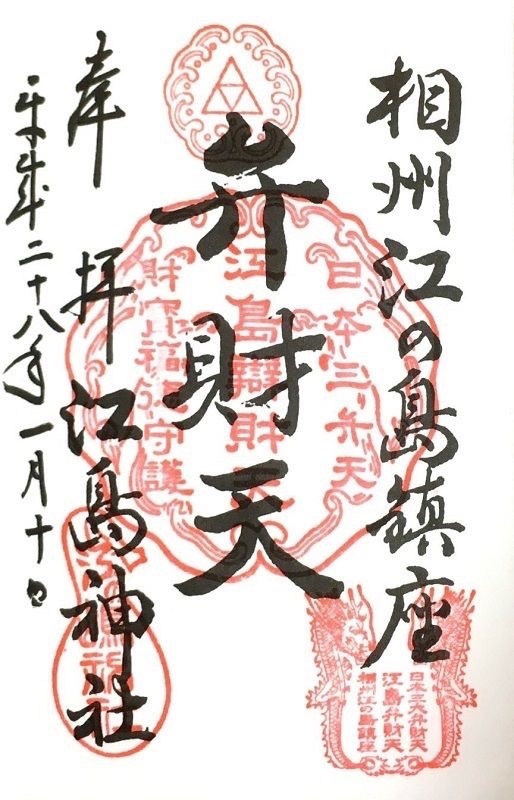 相州江の島鎮座
弁財天
奉拝 江島神社
平成二十八年一月十日
日本三弁天
江島辯財天
財宝福徳守護
江島神社
日本三大弁財天
江島弁財天
相州江の島鎮座